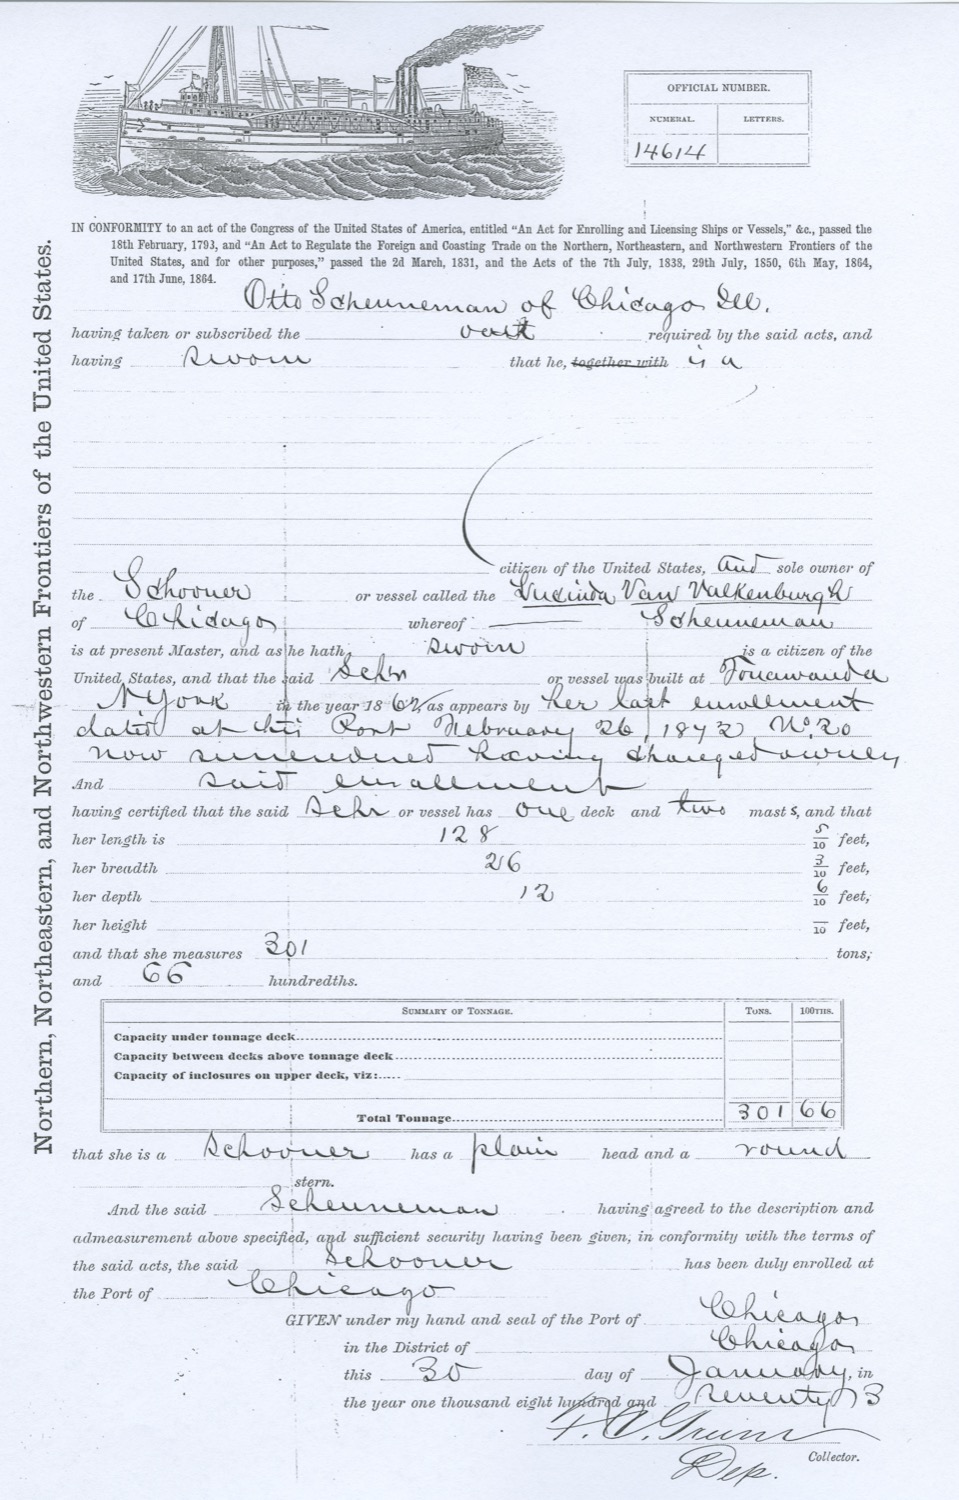 OFFICIAL NUMBER.
NUMERAL. LETTERS.
14614
Northern, Northeastern, and Northwestern Frontiers of the United States.
IN CONFORMITY to an act of the Congress of the United States of America, entitled "An Act for Enrolling and Licensing Ships or Vessels," &c., passed the
18th February, 1793, and "An Act to Regulate the Foreign and Coasting Trade on the Northern, Northeastern, and Northwestern Frontiers of the
United States, and for other purposes," passed the 2d March, 1831, and the Acts of the 7th July, 1838, 29th July, 1850, 6th May, 1864,
and 17th June, 1864.
Otto Scheunneman of Chicago Ill.
having taken or subscribed the oath required by the said acts, and
having sworn that he, together with is a
citizen of the United States, and sole owner of
the Schooner or vessel called the Lucinda Van Valkenburgh
of Chicago whereof Scheunneman
is at present Master, and as he hath sworn is a citizen of the
United States, and that the said Schr or vessel was built at Tonawanda
N York in the year 1862, as appears by her last enrollment
dated at this Port February 26, 1872 No. 20
now surrendered having changed owners
And said enrollment
having certified that the said Schr or vessel has one deck and two masts, and that
her length is 128 5/10 feet,
her breadth 26 3/10 feet,
her depth 12 6/10 feet,
her height /10 feet,
and that she measures 301 tons;
and 66 hundredths.
SUMMARY OF TONNAGE. TONS. 100THS.
Capacity under tonnage deck
Capacity between decks above tonnage deck
Capacity of inclosures on upper deck, viz:
Total Tonnage 301 66
that she is a Schooner has a plain head and a round
stern.
And the said Scheunneman having agreed to the description and
admeasurement above specified, and sufficient security having been given, in conformity with the terms of
the said acts, the said Schooner has been duly enrolled at
the Port of Chicago
GIVEN under my hand and seal of the Port of Chicago
in the District of Chicago
this 30 day of January, in
the year one thousand eight hundred and seventy 3
Collector.
Dep.